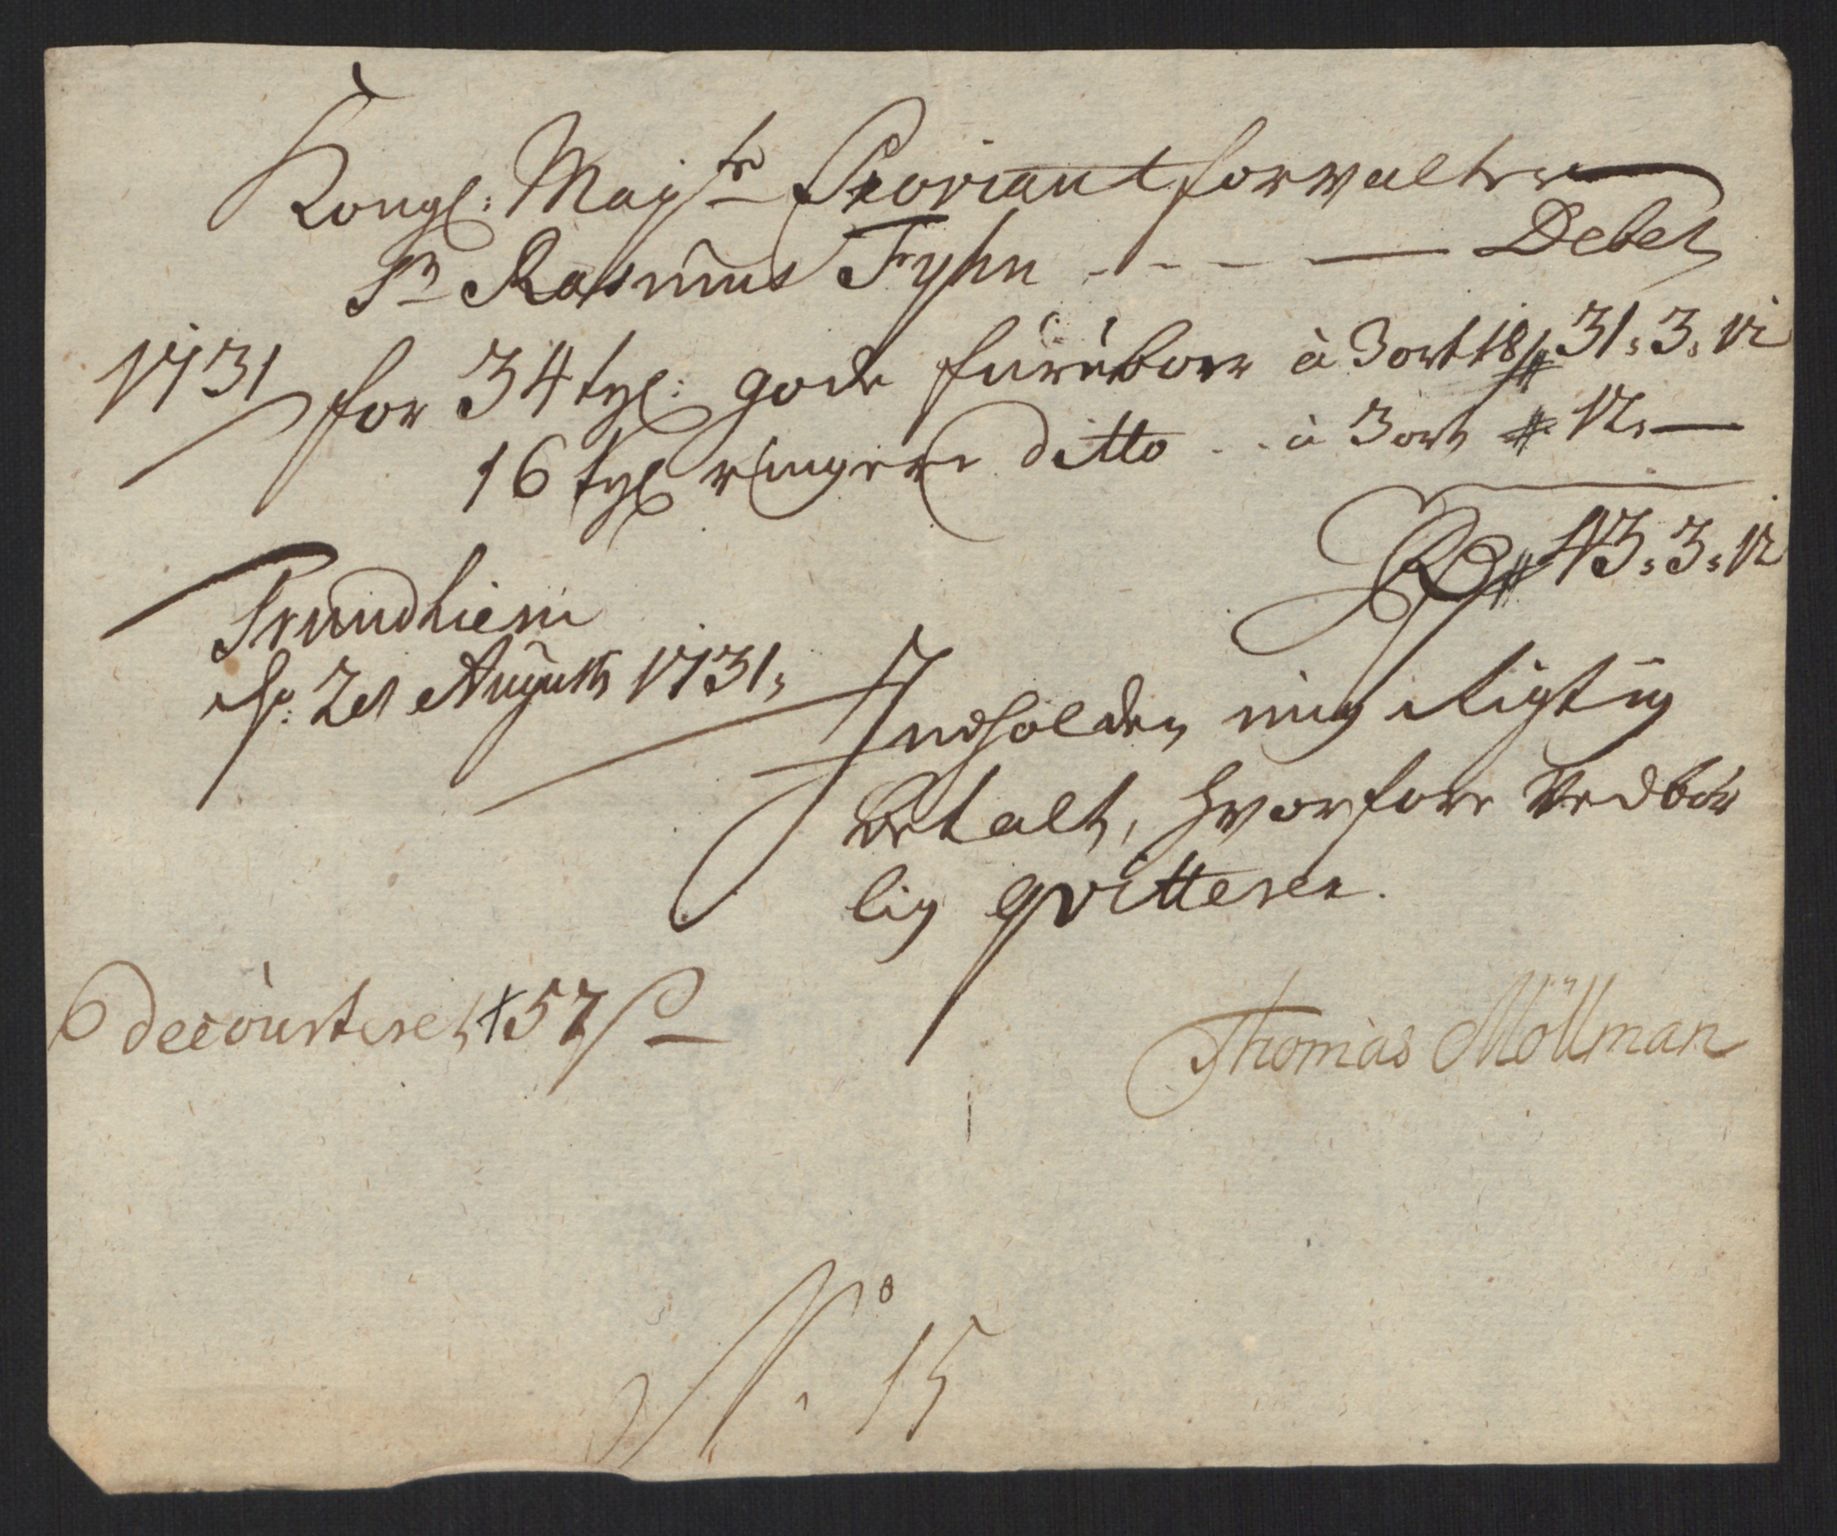 Kongl: Maysts Proviantforvalter
Sr Rasmus Fyhn - - - — Debet
1731 for 34 tyl: gode furubore à 3 ort 18 s 31: 3: 12
16 tyl ringere ditto .. à 3 ort 12: —
Rdr 43: 3: 12
Trundhiem
d: 2en Augusti 1731:
Indholden mig Rigtig
betalt, hvorfore Vedbör
lig qvitterer.
decourteret 57 s
Thomas Möllman
No. 15